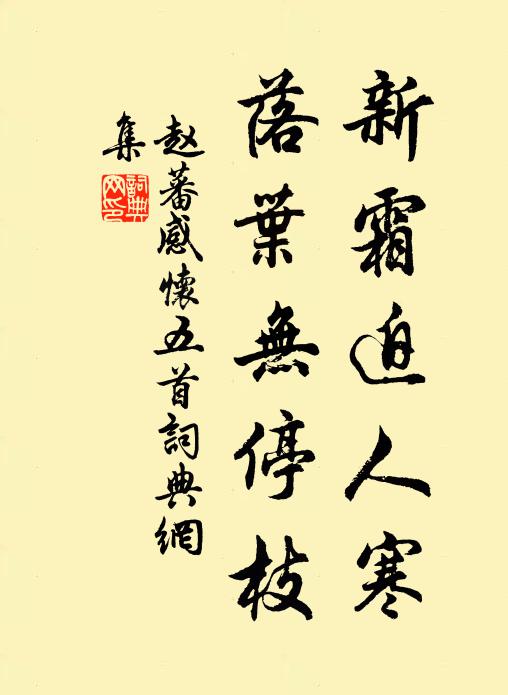 新霜迫人寒
落葉無停枝
赵蕃感懷五首詞典網
集
詞典網印